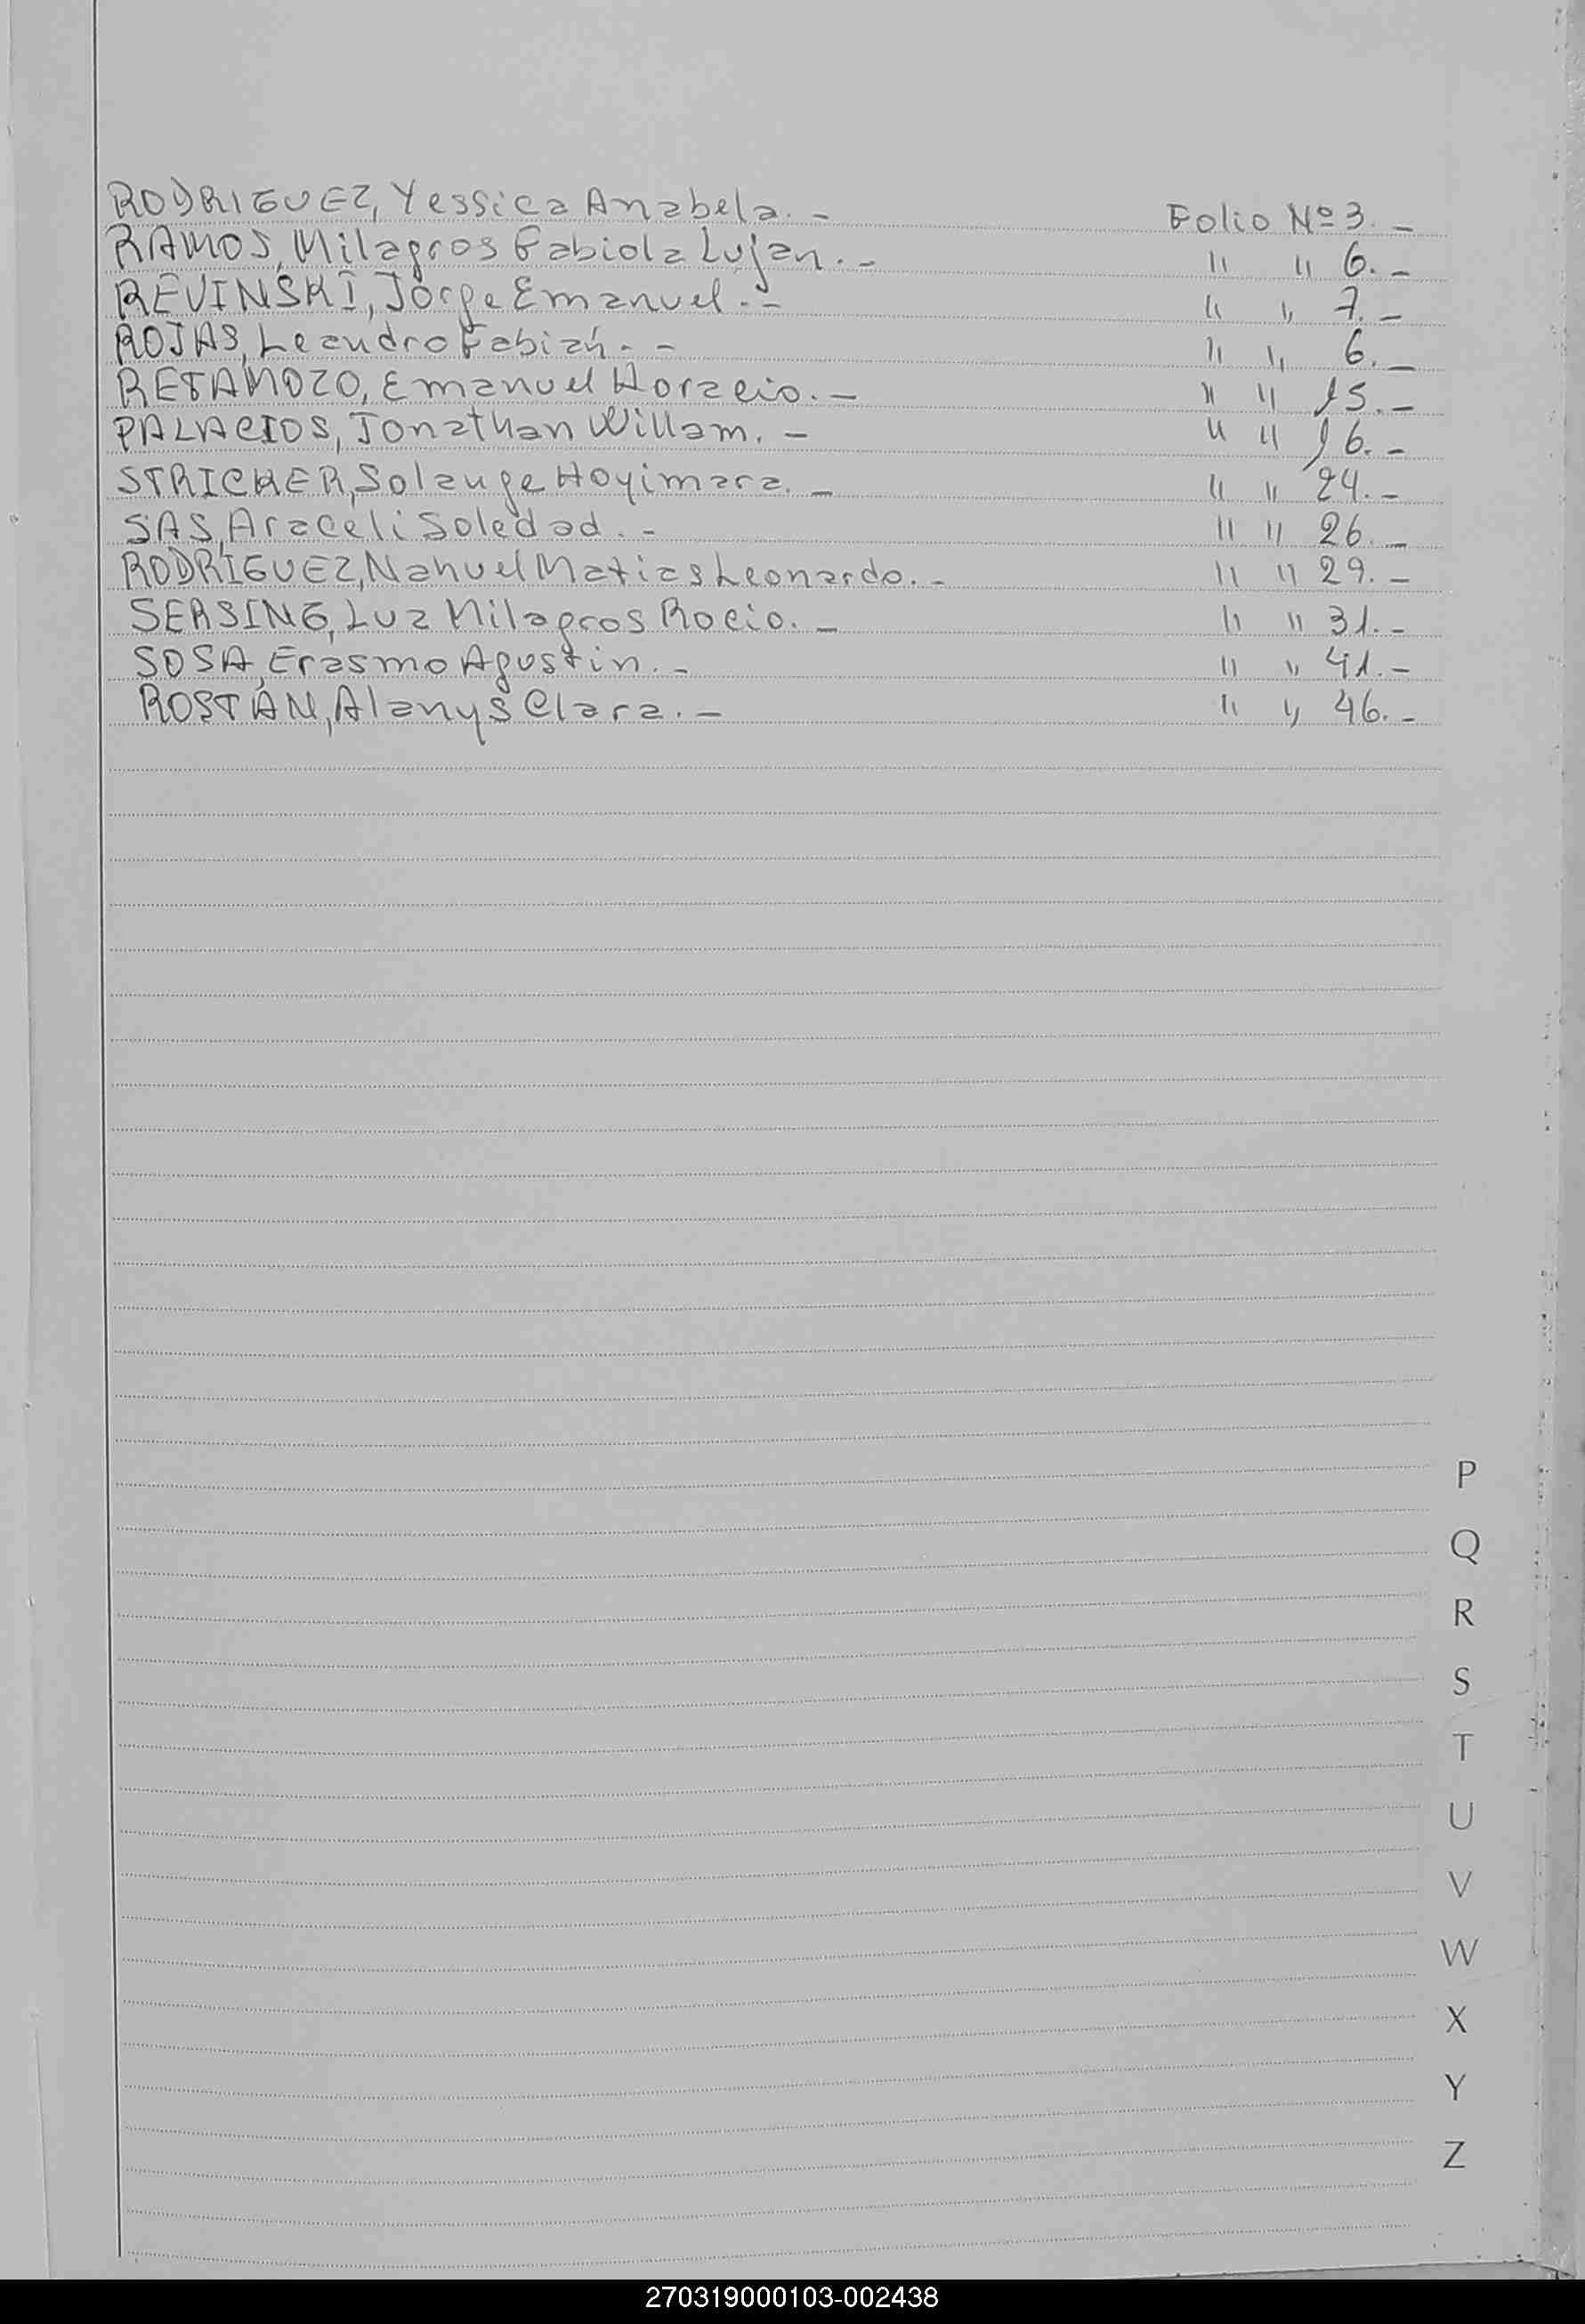 RODRIGUEZ, Yessica Anabela. - Folio Nº 3. -
RAMOS, Milagros Fabiola Lujan. - " " 6. -
REVINSKI, Jorge Emanuel. - " " 7. -
ROJAS, Leandro Fabián. - " " 6. -
RETAMOZO, Emanuel Horacio. - " " 15. -
PALACIOS, Jonathan Willam. - " " 16. -
STRICKER, Solange Hoyimara. - " " 24. -
SAS, Araceli Soledad. - " " 26. -
RODRÍGUEZ, Nahuel Matias Leonardo. - " " 29. -
SERSING, Luz Milagros Rocio. - " " 31. -
SOSA, Erasmo Agustin. - " " 41. -
ROSTÁN, Alanys Clara. - " " 46. -
P
Q
R
S
T
U
V
W
X
Y
Z
270319000103-002438